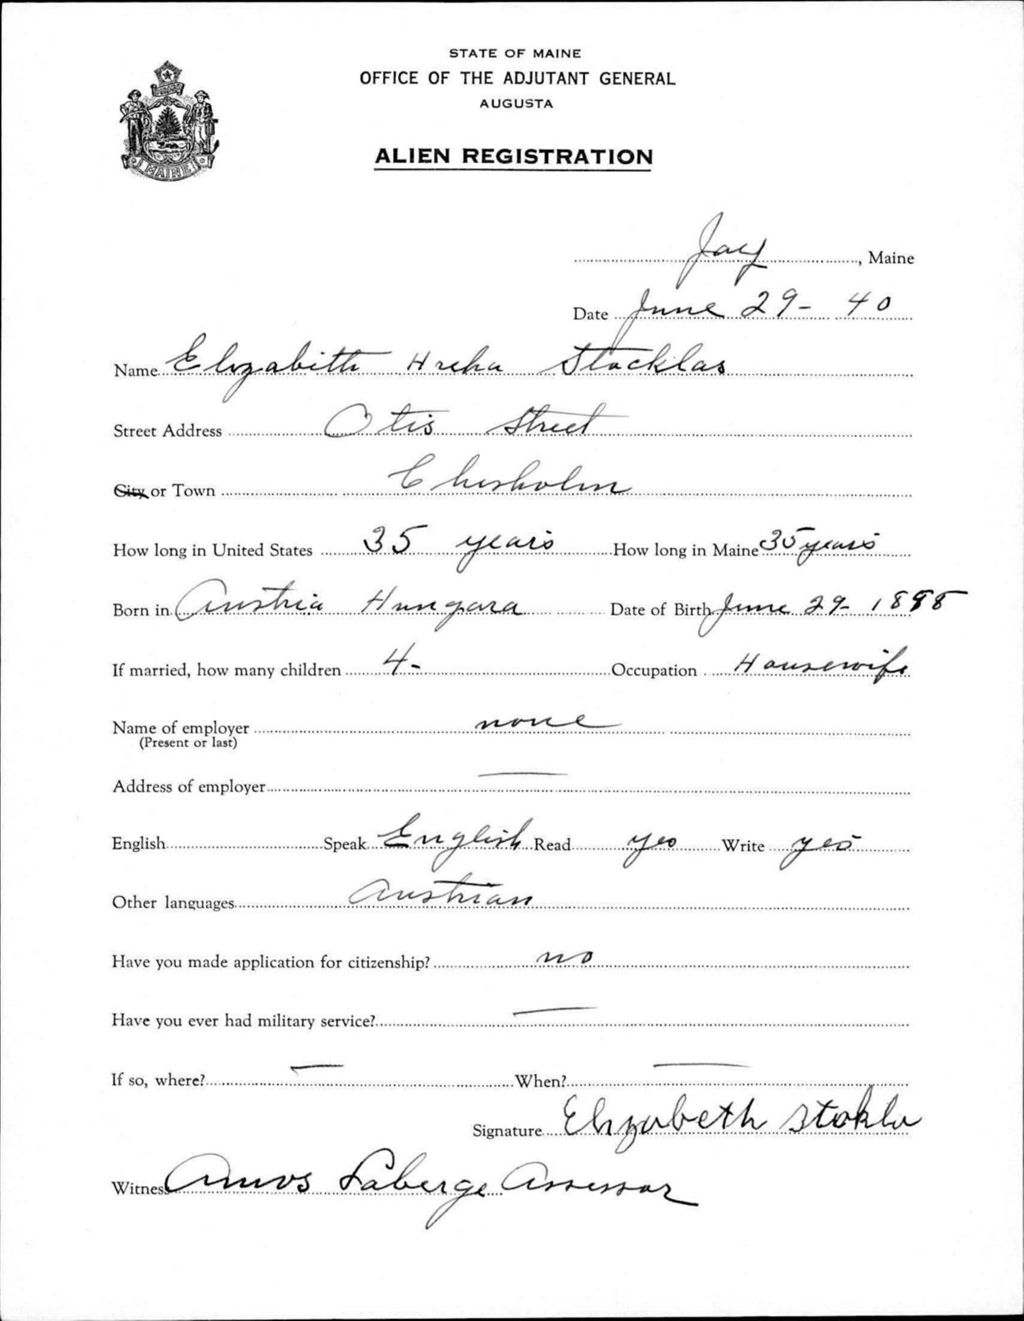 STATE OF MAINE
OFFICE OF THE ADJUTANT GENERAL
AUGUSTA
ALIEN REGISTRATION
MAINE
Jay, Maine
Date June 29- 40
Name Elizabith Hreha Stocklas
Street Address Otis Street
City or Town Chisholm
How long in United States 35 years How long in Maine 35 years
Born in Austria Hungara Date of Birth June 29- 1898
If married, how many children 4- Occupation Housewife
Name of employer none
(Present or last)
Address of employer —
English Speak English Read yes Write yes
Other languages Austrian
Have you made application for citizenship? no
Have you ever had military service? —
If so, where? — When? —
Signature Elizabeth Stokla
Witness Amos Laberge Assessor